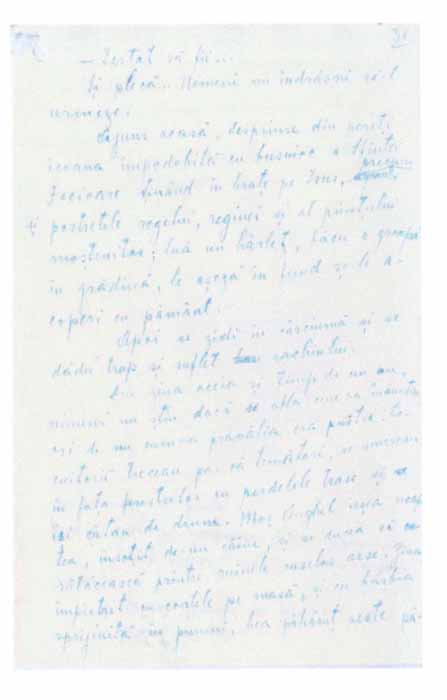 31
— Iertat să fii...
Și plecă. Nimeni nu îndrăzni să-l
urmeze.
Ajuns acasă, desprinse din pereți
icoana împodobită cu busuioc a Sfintei
precum
Fecioare ținând în brațe pe Isus,
și portretele regelui, reginei și al prințului
moștenitor; luă un hârleț, făcu o groapă
în grădină, le așeză în fund și le a-
coperi cu pământ.
Apoi se zidi în cârciumă și se
dădu trup și suflet rachiului.
Din ziua aceea și timp de un an,
nimeni nu știu dacă se afla cine
ori de nu cumva prăvălia era pustie.
treceau pe
în fața ferestrelor cu perdelele trase și
își căutau de drum. Moș Anghel ieșea noap-
tea, însoțit de un câine, și se ducea să
rătăcească printre ruinele caselor arse. Ziua
împietrit cu coatele pe masă, și cu bărbia
sprijinită în pumni, bea păhăruț după pă-